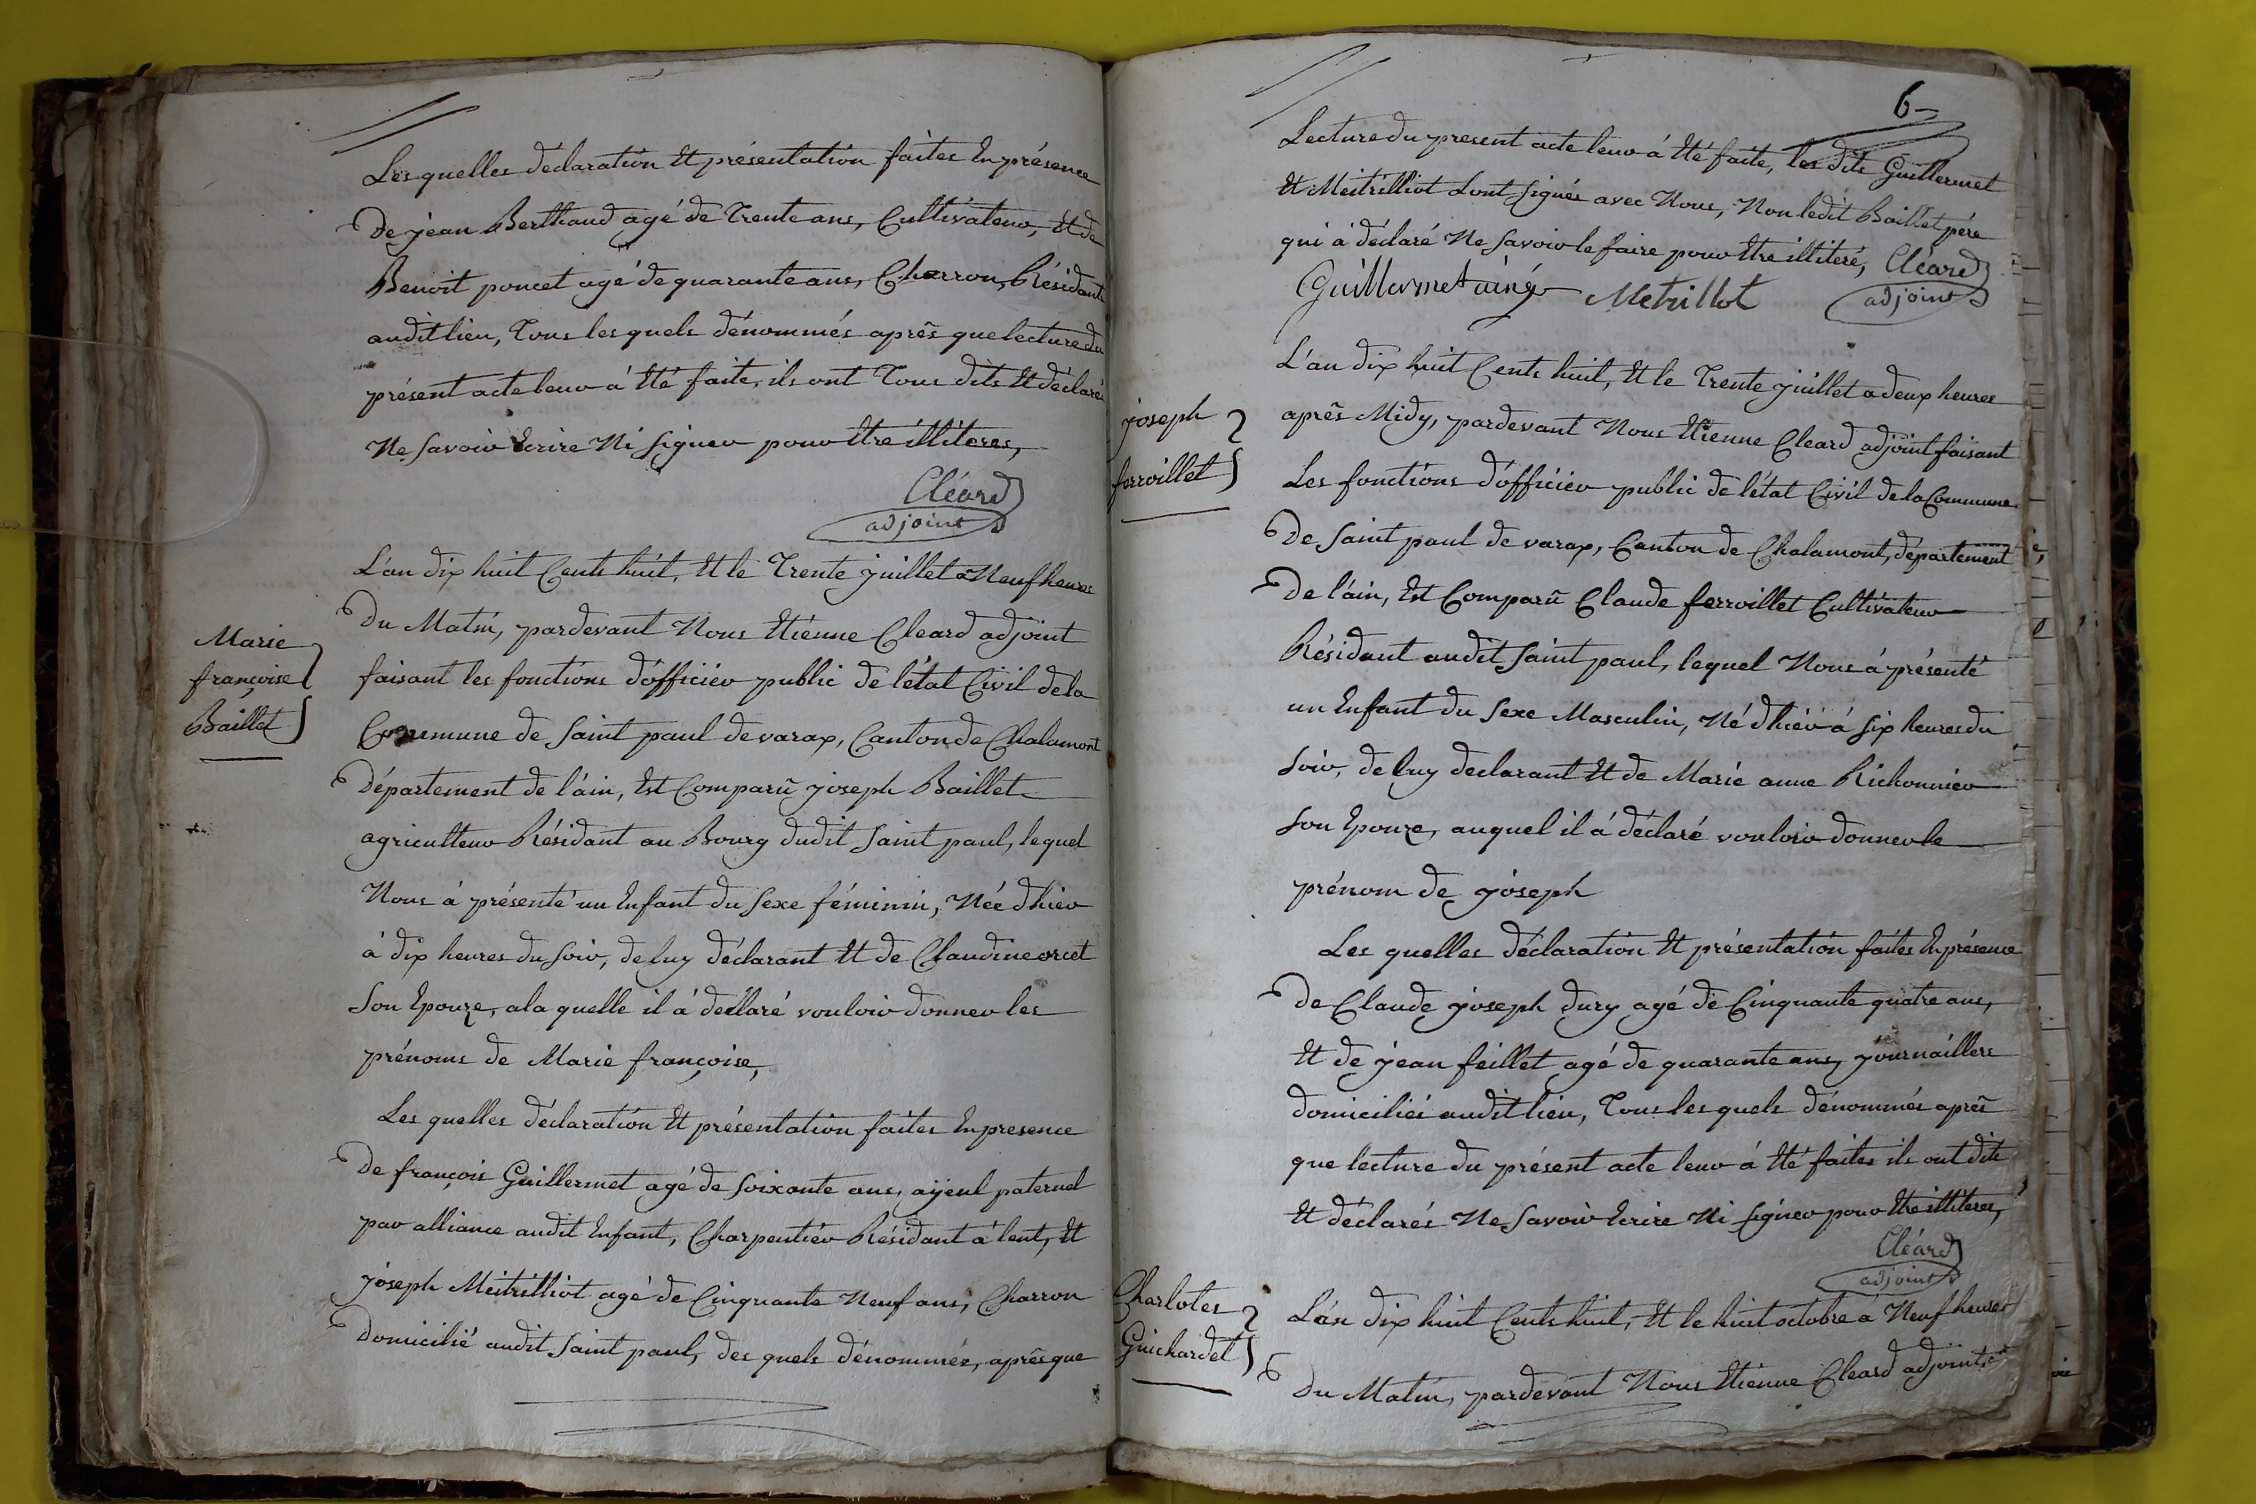 Les quelles déclaration Et présentation faites En présence
De jéan Berthaud agé de Trente ans, Cultivateur, Et de
Benoit poncet agé de quarante ans, Charron, Résidants
audit lieu, Tous les quels dénommés aprês que lecture du
présent acte leur á Eté faite, ils ont Tous dits Et déclarés
Ne Savoir Ecrire Ni Signer pour Etre illiteres,
Cléard
adjoint
Marie
françoise
Baillet
L'an dix huit Cents huit, Et le Trente juillet a Neuf heures
Du Matin, pardevant Nous Etienne Cleard adjoint
faisant les fonctions d'officier public de l'état Civil de la
Commune de Saint paul de varax, Canton de Chalamont
Département de l'áin, Est Comparû joseph Baillet
agriculteur Résidant au Bourg dudit Saint paul, lequel
Nous á présenté un Enfant du Sexe féminin, Née d'hier
á dix heures du Soir, de luy déclarant Et de Claudine orcet
Son Epouze, a la quelle il á déclaré vouloir donner les
prénoms de Marie françoise,
Les quelles déclaration Et présentation faites En presence
De françois Guillermet agé de Soixante ans, ayeul paternel
par alliance audit Enfant, Charpentier Résidant á lent, Et
joseph Meitrilliot agé de Cinquante Neuf ans, Charron
domicilié audit Saint paul, des quels dénommés, aprês que
6
Lecture du present acte leur á Eté faite, les dits Guillermet
Et Meitrilliot Sont Signés avec Nous, Non ledit Baillet pére
qui á déclaré Ne Savoir le faire pour Etre illiteré,
Cléard
adjoint
Guillermet ainé Metrillot
joseph
ferroillet
L'an dix huit Cents huit, Et le Trente juillet a deux heures
aprês Midy, pardevant Nous Etienne Cleard adjoint faisant
Les fonctions d'officier public de l'état Civil de la Commune
De Saint paul de varax, Canton de Chalamont, département
De l'áin, Est Comparû Claude ferroillet Cultivateur
Résidant audit Saint paul, lequel Nous á présenté
un Enfant du Sexe Masculin, Né d'hier á Six heures du
Soir, de luy declarant Et de Marie anne Richonnier
Son Epouze, auquel il á déclaré vouloir donner le
prénom de joseph
Les quelles déclaration Et présentation faites En présence
De Claude joseph dury agé de Cinquante quatre ans,
Et de jean feillet agé de quarante ans, journaillers
domiciliés audit lieu, Tous les quels dénommés aprês
que lecture du présent acte leur á Eté faites ils ont dits
Et déclarés Ne Savoir Ecrire Ni Signer pour Etre illiteres,
Cléard
adjoint
Charlotes
Guichardet
L'an dix huit Cents huit, Et le huit octobre a Neuf heures
Du Matin, pardevant Nous Etienne Cleard adjoint